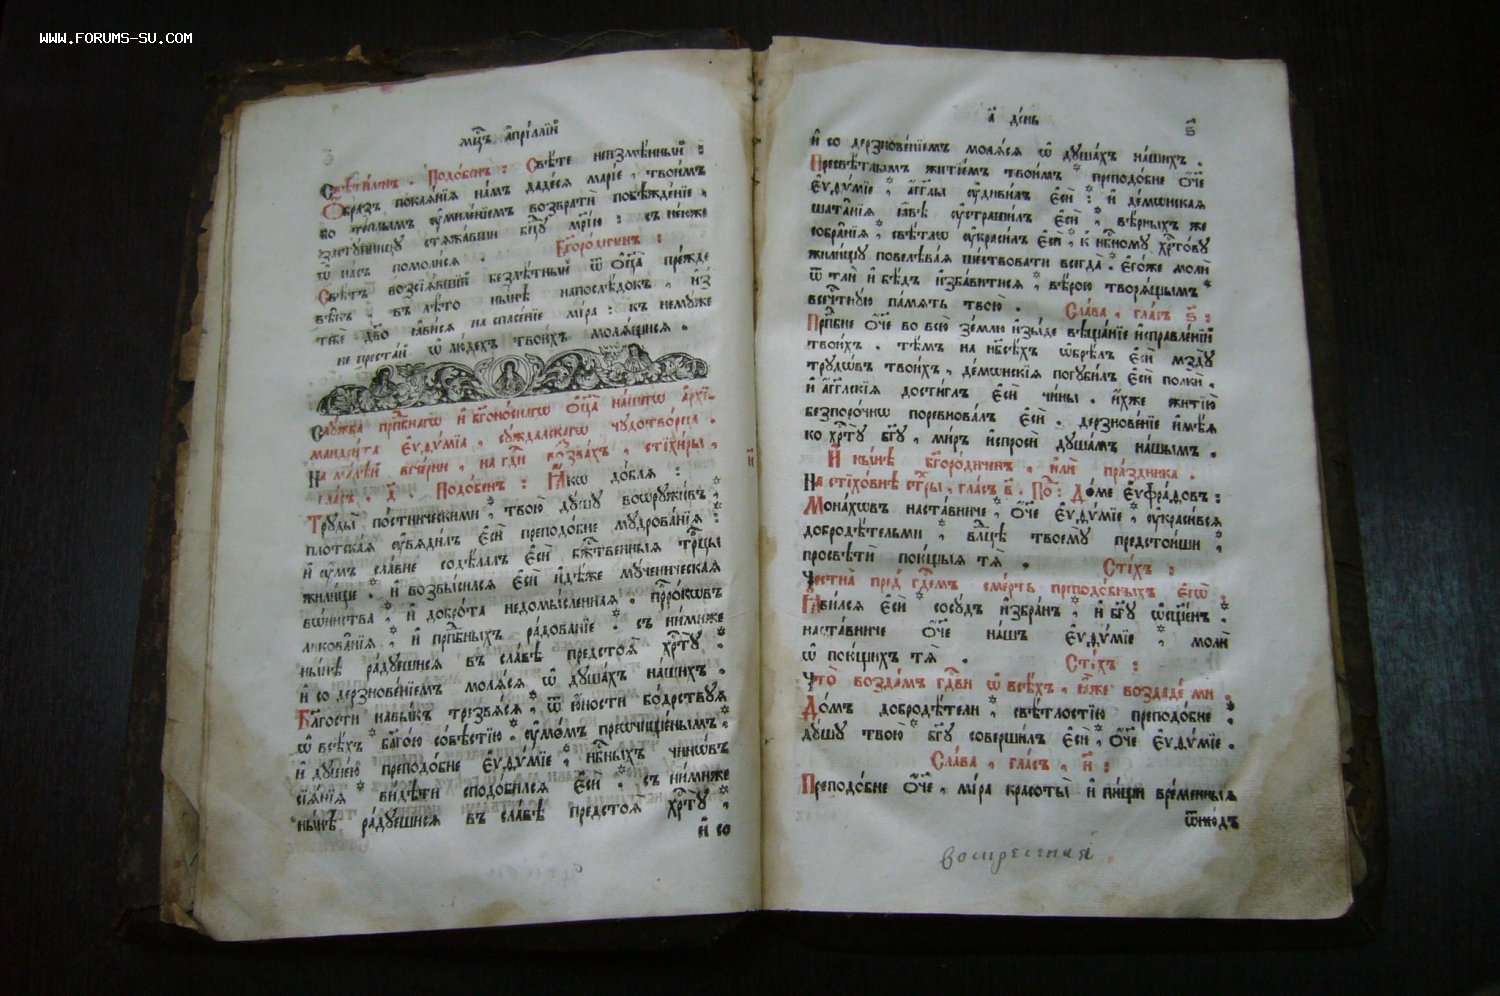 WWW.FORUMS-SU.COM
мц҃ъ а҆прі́ллїй
Свѣти́ленъ. Подо́бенъ: Свѣ́те неизмѣ́нный:
Ѻ҆́бразъ покаѧ́нїѧ на́мъ даде́сѧ марі́е, твои́мъ
бо те́плымъ ᲂу҆миле́нїемъ возврати́ побѣжде́нїе,
засту́пницу стѧжа́вши бц҃у мр҃і́ю: съ не́юже
ѡ҆ на́съ помоли́сѧ. Бг҃оро́диченъ:
Свѣ́тъ возсїѧ́вшїй безлѣ́тный ѿ ѻ҆ц҃а̀ пре́жде
вѣ́къ, въ лѣ́то ны́нѣ напослѣ́докъ, и҆з̾
тебє̀ дв҃о ꙗ҆ви́сѧ на спасе́нїе мі́ра: къ немꙋ́же
не преста́й ѡ҆ лю́дехъ твои́хъ молѧ́щисѧ.
Слꙋ́жба прп҃бнагѡ и҆ бг҃оно́снагѡ ѻ҆ц҃а̀ на́шегѡ а҆рхї-
мандрі́та є҆ѵѳѵ́мїа, сꙋ́ждальскагѡ чꙋдотво́рца.
На ма́лѣй вече́рни, на гд҃и воззва́хъ, стїхи́ры,
гла́съ, Подо́бенъ: Ꙗ҆́кѡ до́блѧ:
Трꙋды̀ по́стническими, твою̀ дꙋ́шꙋ воѡрꙋжи́въ,
пло́тскаѧ ᲂу҆вѧди́лъ є҆сѝ преподо́бне мꙋдрова́нїѧ:
и҆ ᲂу҆́мъ сла́вне содѣ́лалъ є҆сѝ бж҃твенныѧ трⷪ҇цы
жили́ще: и҆ возвы́силсѧ є҆сѝ и҆дѣ́же мꙋ́ченическаѧ
вѡ́инства, и҆ добро́та недомы́сленнаѧ. прⷪ҇ро́кѡвъ
ликова́нїѧ, и҆ прп҃бныхъ ра́дованїе: съ ни́миже
ны́нѣ ра́дꙋешисѧ въ сла́вѣ предстоѧ̀ хрⷭ҇тꙋ̀:
и҆ со дерзнове́нїемъ молѧ́сѧ ѡ҆ дꙋша́хъ на́шихъ.
Бл҃гости навы́къ трезвѧ́сѧ, ѿ ю҆́ности бо́дрствꙋѧ
ѡ҆ всѣ́хъ бл҃го́ю со́вѣстїю. ᲂу҆мо́мъ преѡчище́ннымъ
и҆ дꙋше́ю преподо́бне є҆ѵѳѵ́мїе, нбⷭ҇ныхъ чинѡ́въ
сїѧ́нїѧ ви́дѣти сподо́билсѧ є҆сѝ. съ ни́миже
ны́нѣ ра́дꙋешисѧ въ сла́вѣ предстоѧ̀ хрⷭ҇тꙋ̀,
и҆ со
а҃ де́нь
ѕ҃
и҆ со дерзнове́нїемъ молѧ́сѧ ѡ҆ дꙋша́хъ на́шихъ.
Пресвѣ́тлымъ житїе́мъ твои́мъ преподо́бне ѻ҆́ч҃е
є҆ѵѳѵ́мїе, а҆́гг҃лы ᲂу҆диви́лъ є҆сѝ: и҆ де́мѡнскаѧ
шата́нїѧ ꙗ҆́вѣ ᲂу҆страши́лъ є҆сѝ, вѣ́рныхъ же
собра́нїѧ, свѣ́тлѡ ᲂу҆краси́лъ є҆сѝ, к̾ нбⷭ҇номꙋ хрⷭ҇то́вꙋ
жили́щꙋ повелѣва́ѧ ше́ствовати всегда̀. є҆го́же молѝ
ѿ тлѝ и҆ бѣ́дъ и҆зба́витисѧ, вѣ́рою творѧ́щымъ
всечⷭ҇тнꙋ́ю па́мѧть твою̀. Сла́ва, гла́съ ѕ҃:
Прп҃бне ѻ҆́ч҃е во всю̀ зе́млю и҆зы́де вѣща́нїе и҆справле́нїй
твои́хъ. тѣ́мъ на нб҃сѣ́хъ ѡ҆брѣ́лъ є҆сѝ мздꙋ̀
трꙋдѡ́въ твои́хъ, де́мѡнскїѧ погꙋби́лъ є҆сѝ полкѝ.
и҆ а҆́гг҃лскїѧ дости́глъ є҆сѝ чи́ны. и҆́хже житїю̀
безпоро́чнѡ поревнова́лъ є҆сѝ. дерзнове́нїе и҆мѣ́ѧ
ко хрⷭ҇тꙋ̀ бг҃ꙋ, ми́ръ и҆спросѝ дꙋша́мъ на́шымъ.
И҆ ны́нѣ бг҃оро́диченъ, и҆лѝ пра́здника.
На стїхо́внѣ стⷯры, гла́съ в҃. Поⷣ: До́ме є҆ѵфра́ѳовъ:
Мона́хѡвъ наста́вниче, ѻ҆́ч҃е є҆ѵѳѵ́мїе, ᲂу҆краси́всѧ
добродѣ́тельми, влⷣцѣ твоемꙋ̀ предстоѝши,
просвѣтѝ пою́щыѧ тѧ̀. Сті́хъ:
Честна̀ пред̾ гдⷭ҇емъ сме́рть преподо́бныхъ є҆гѡ̀.
Ꙗ҆ви́лсѧ є҆сѝ сосꙋ́дъ и҆збра́нъ, и҆ бг҃ꙋ ѡ҆сщ҃е́нъ.
наста́вниче ѻ҆́ч҃е на́шъ є҆ѵѳѵ́мїе, молѝ
ѡ҆ пою́щихъ тѧ̀. Сті́хъ:
Что̀ возда́мъ гдⷭ҇ви ѡ҆ всѣ́хъ, ꙗ҆̀же воздаде́ ми:
До́мъ добродѣ́тели, свѣ́тлостїю преподо́бне:
дꙋ́шꙋ твою̀ бг҃ꙋ соверши́лъ є҆сѝ, ѻ҆́ч҃е є҆ѵѳѵ́мїе.
Сла́ва, гла́съ, и҃:
Преподо́бне ѻ҆́ч҃е, мі́ра красоты̀ и҆ пи́щи вре́менныѧ
ѿню́дъ
воскресная